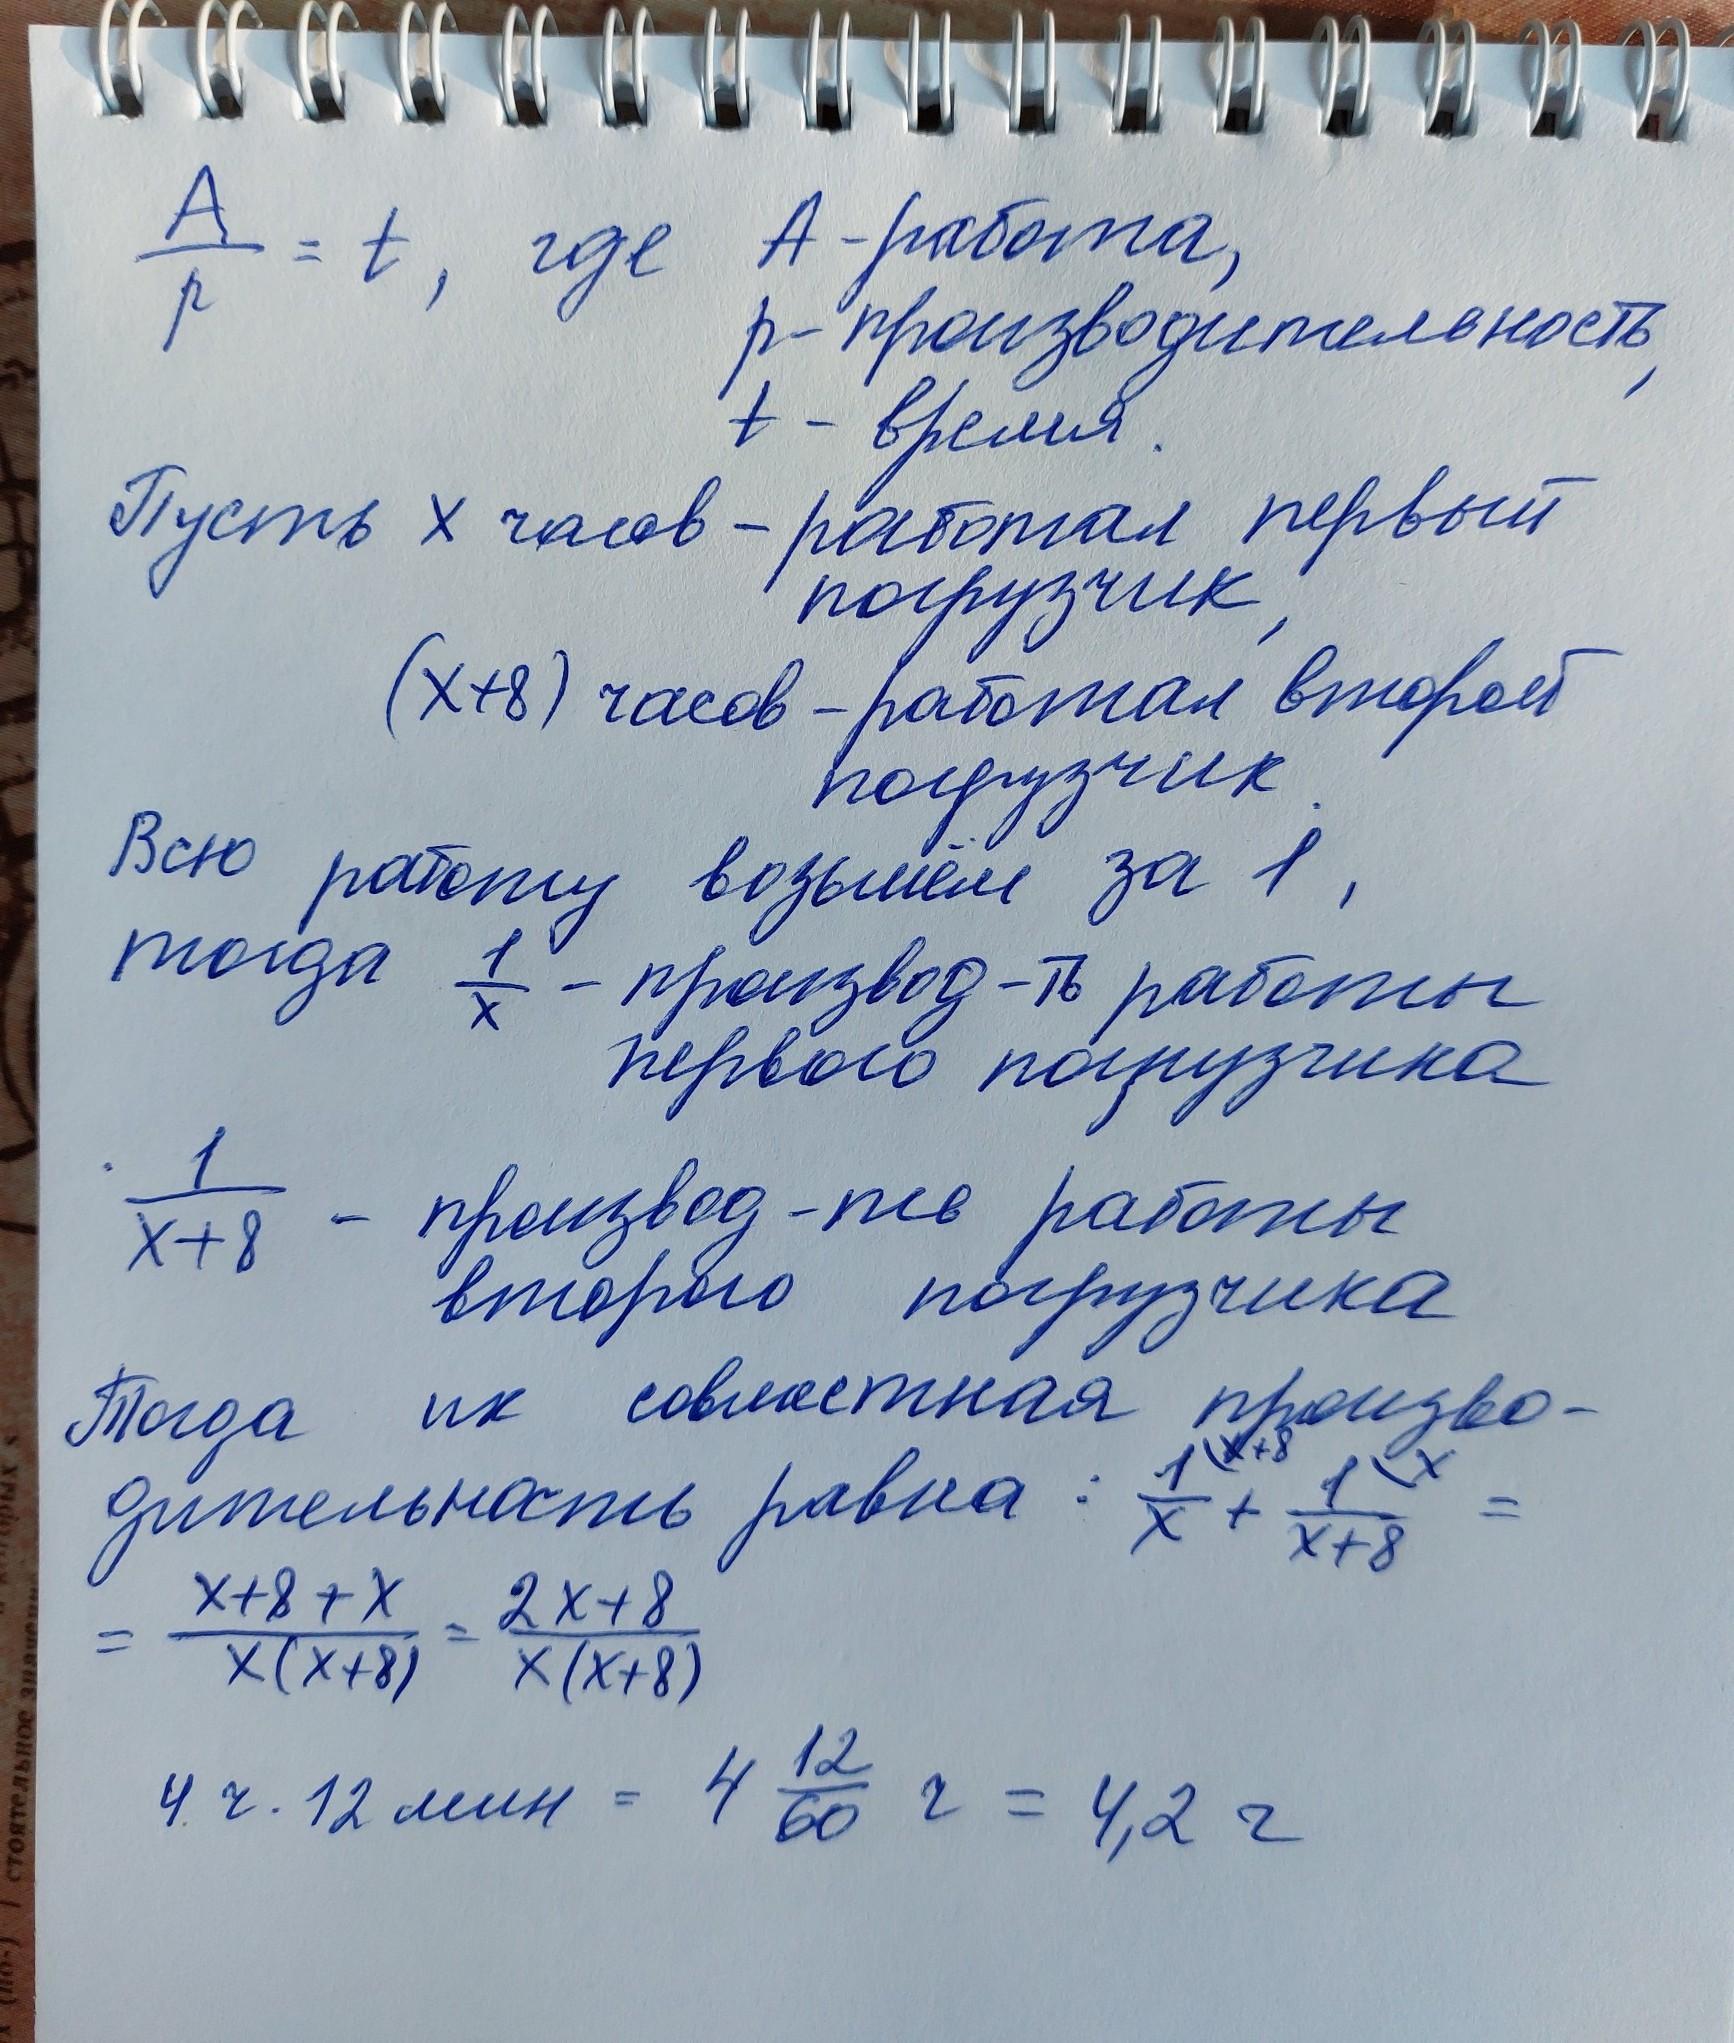 A/p = t, где A - работа,
p - производительность,
t - время.
Пусть x часов - работал первый
погрузчик,
(x+8) часов - работал второй
погрузчик.
Всю работу возьмём за 1,
тогда 1/x - производ-ть работы
первого погрузчика
1/(x+8) - производ-ть работы
второго погрузчика
Тогда их совместная произво-
дительность равна: 1\x+8/x + 1\x/(x+8) =
= (x+8+x)/(x(x+8)) = (2x+8)/(x(x+8))
4 ч. 12 мин = 4 12/60 ч = 4,2 ч
стоятельное